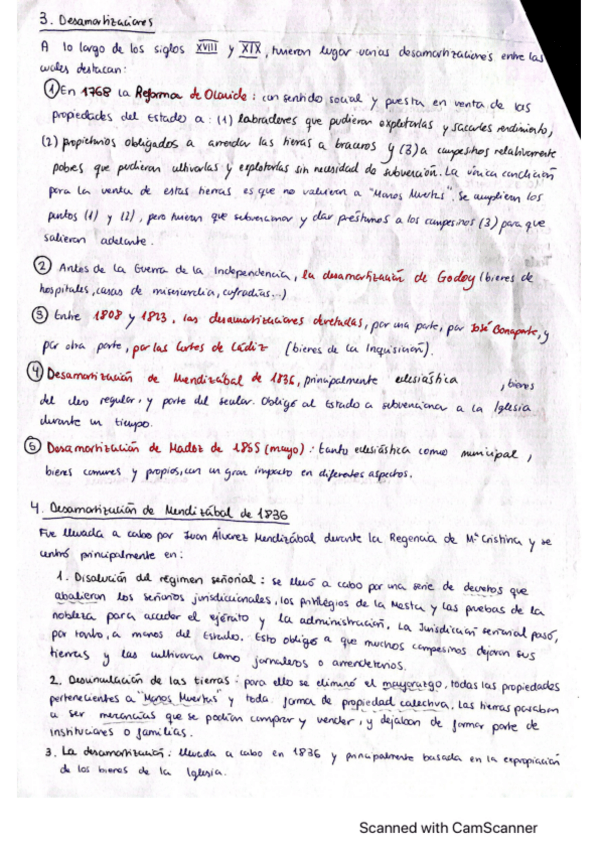 3. Desamortizaciones
A lo largo de los siglos XVIII y XIX, tuvieron lugar varias desamortizaciones entre las
cuales destacan:
① En 1768 la Reforma de Olavide: con sentido social y puesta en venta de las
propiedades del Estado a: (1) labradores que pudieran explotarlas y sacarles rendimiento,
(2) propietarios obligados a arrendar las tierras a braceros y (3) a campesinos relativamente
pobres que pudieran cultivarlas y explotarlas sin necesidad de subvención. La única condición
para la venta de estas tierras es que no volvieran a "Manos Muertas". Se cumplieron los
puntos (1) y (2), pero tuvieron que subvencionar y dar préstamos a los campesinos (3) para que
salieran adelante.
② Antes de la Guerra de la Independencia, la desamortización de Godoy (bienes de
hospitales, casas de misericordia, cofradías...)
③ Entre 1808 y 1823, las desamortizaciones decretadas, por una parte, por José Bonaparte, y
por otra parte, por las Cortes de Cádiz (bienes de la Inquisición).
④ Desamortización de Mendizábal de 1836, principalmente eclesiástica , bienes
del clero regular, y parte del secular. Obligó al Estado a subvencionar a la Iglesia
durante un tiempo.
⑤ Desamortización de Madoz de 1855 (mayo): tanto eclesiástica como municipal,
bienes comunes y propios, con un gran impacto en diferentes aspectos.
4. Desamortización de Mendizábal de 1836
Fue llevada a cabo por Juan Álvarez Mendizábal durante la Regencia de Mª Cristina y se
centró principalmente en:
1. Disolución del régimen señorial: se llevó a cabo por una serie de decretos que
abolieron los señoríos jurisdiccionales, los privilegios de la Mesta y las pruebas de la
nobleza para acceder al ejército y la administración. La jurisdicción señorial pasó,
por tanto, a manos del Estado. Esto obligó a que muchos campesinos dejaran sus
tierras y las cultivaran como jornaleros o arrendatarios.
2. Desvinculación de las tierras: para ello se eliminó el mayorazgo, todas las propiedades
pertenecientes a "Manos Muertas" y toda forma de propiedad colectiva. Las tierras pasaban
a ser mercancías que se podían comprar y vender, y dejaban de formar parte de
instituciones o familias.
3. La desamortización: llevada a cabo en 1836 y principalmente basada en la expropiación
de los bienes de la Iglesia.
Scanned with CamScanner